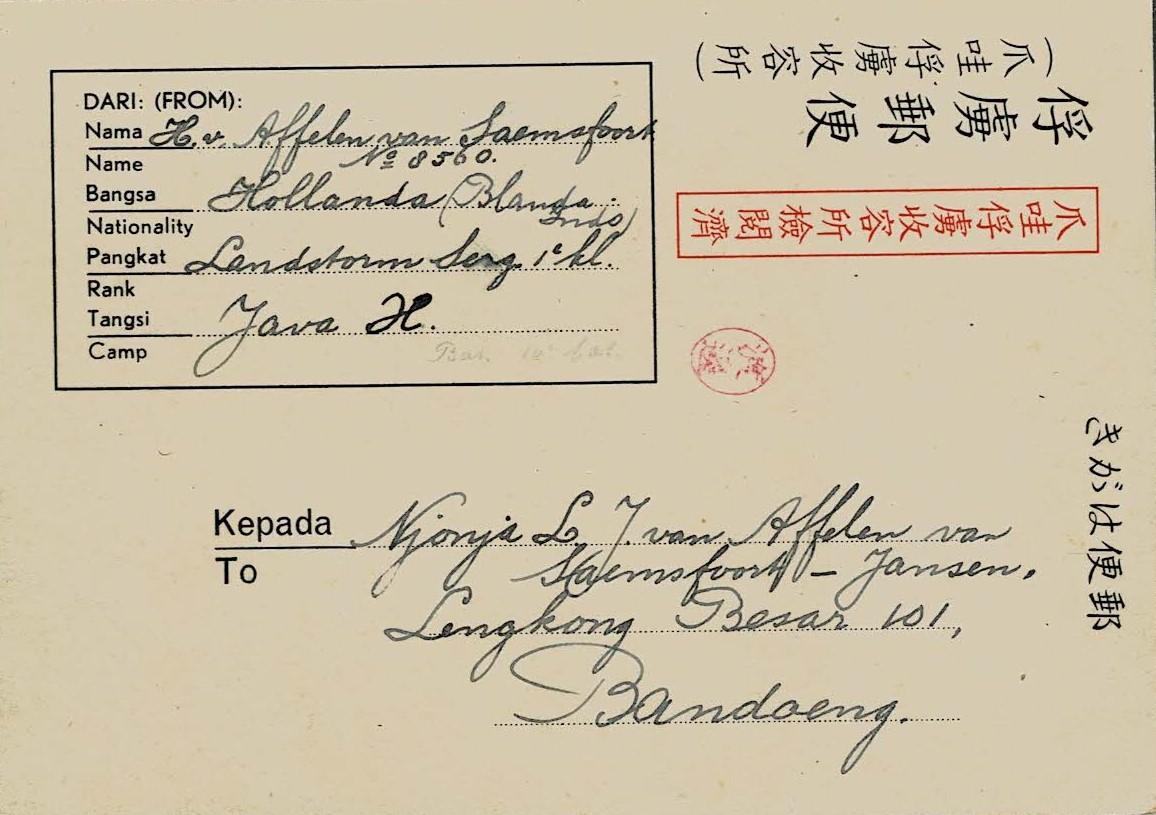 DARI: (FROM):
Nama H. v. Affelen van Saemsfoort
Name No 8560.
Bangsa Hollanda (Blanda Indo)
Nationality
Pangkat Landstorm Serg. 1e kl.
Rank
Tangsi Java H.
Camp
Kepada Njonja L. J. van Affelen van
To Saemsfoort – Jansen.
Lengkong Besar 101,
Bandoeng.
(爪哇俘虜收容所)
俘虜郵便
爪哇俘虜收容所檢閱濟
郵便はがき